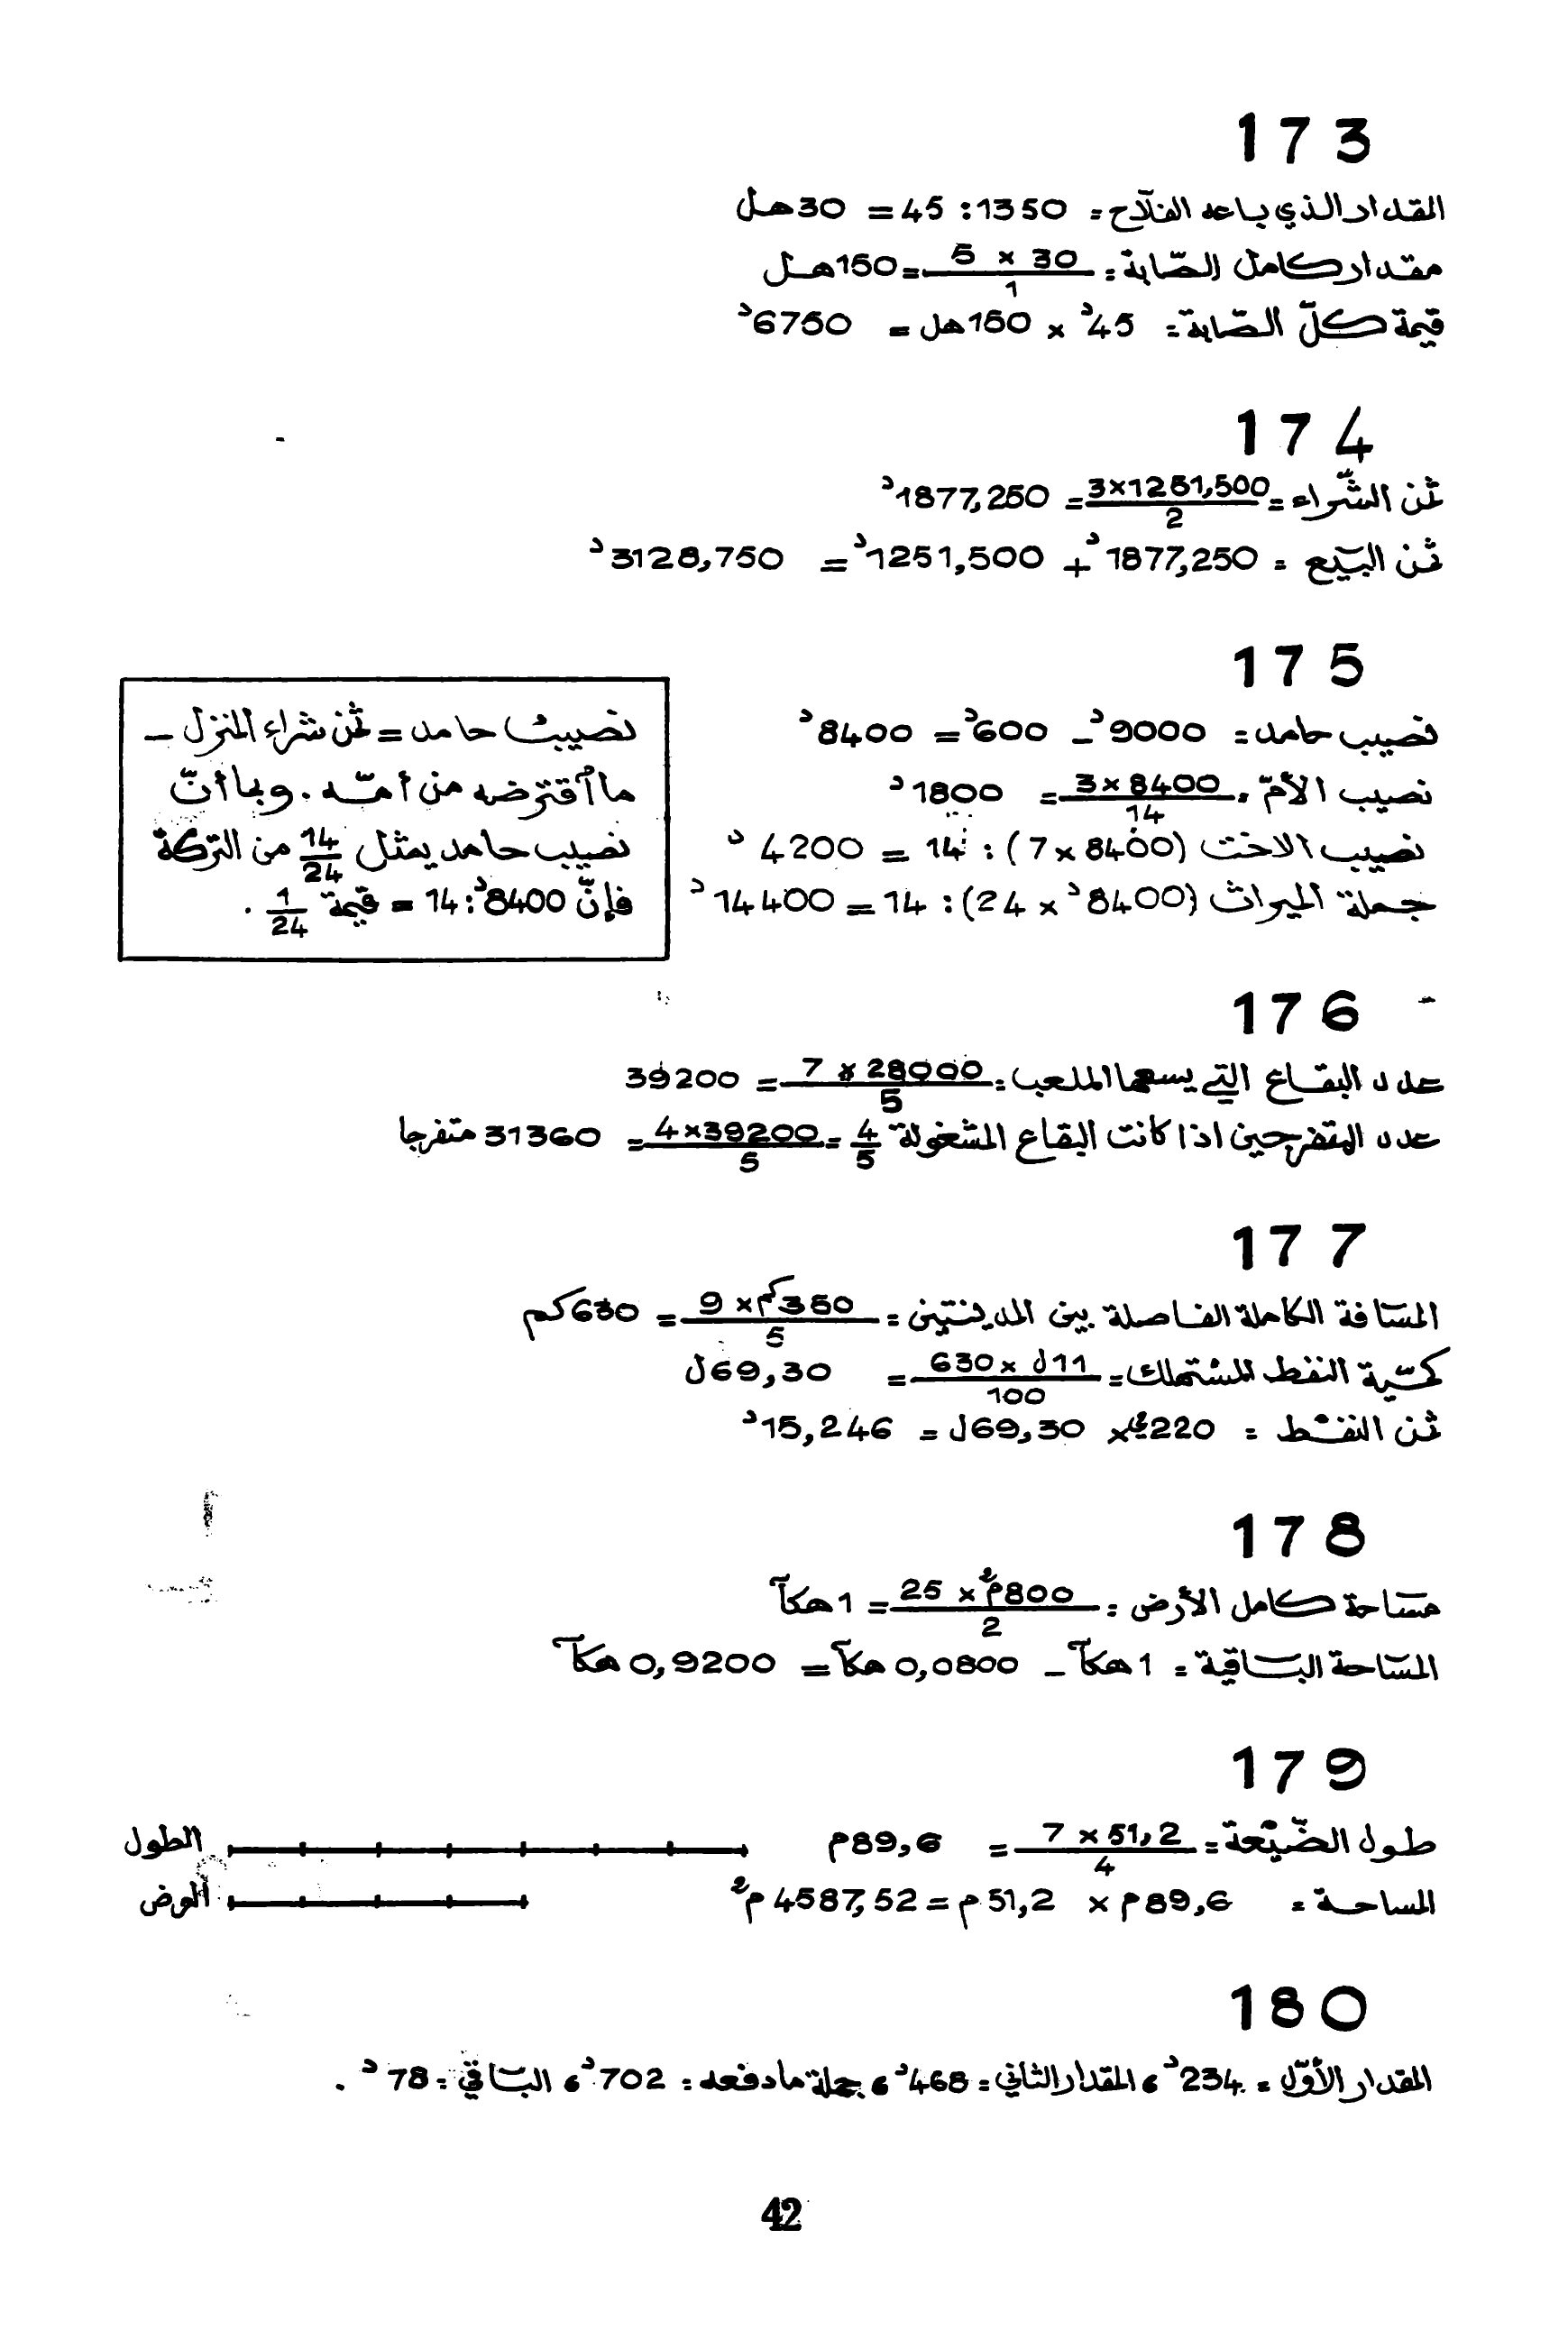 173
المقدار الذي باعه الفلّاح = 1350 : 45 = 30هل
مقدار كامل الصّابة = 30 × 5 / 1 = 150هل
قيمة كلّ الصّابة = 45د × 150هل = 6750د
174
ثمن الشّراء = 1251,500×3 / 2 = 1877,250د
ثمن البيع = 1877,250د + 1251,500د = 3128,750د
175
نصيب حامد = 9000د – 600د = 8400د
نصيب الأمّ = 8400×3 / 14 = 1800د
نصيب الاخت (8400×7) : 14 = 4200د
جملة الميراث (8400د × 24) : 14 = 14400د
نصيب حامد = ثمن شراء المنزل –
ما أقترضه من أمّه . وبما أنّ
نصيب حامد يمثل 14/24 من التركة
فإنّ 8400د : 14 = قيمة 1/24 .
176
عدد البقاع التي يسعها الملعب = 28000 × 7 / 5 = 39200
عدد المتفرجين اذا كانت البقاع المشغولة 4/5 = 39200×4 / 5 = 31360 متفرجا
177
المسافة الكاملة الفاصلة بين المدينتين = 350كم × 9 / 5 = 630كم
كمّية النفط المستهلك = 11ل × 630 / 100 = 69,30ل
ثمن النفط = 220مي × 69,30ل = 15,246د
178
مساحة كامل الأرض = 800م² × 25 / 2 = 1هكآ
المساحة الباقية = 1هكآ – 0,0800هكآ = 0,9200هكآ
179
طول الضّيعة = 51,2 × 7 / 4 = 89,6م
الطول
المساحة = 89,6م × 51,2م = 4587,52م²
العرض
180
المقدار الأوّل = 234د، المقدار الثاني = 468د، جملة ما دفعه = 702د، الباقي = 78د .
42